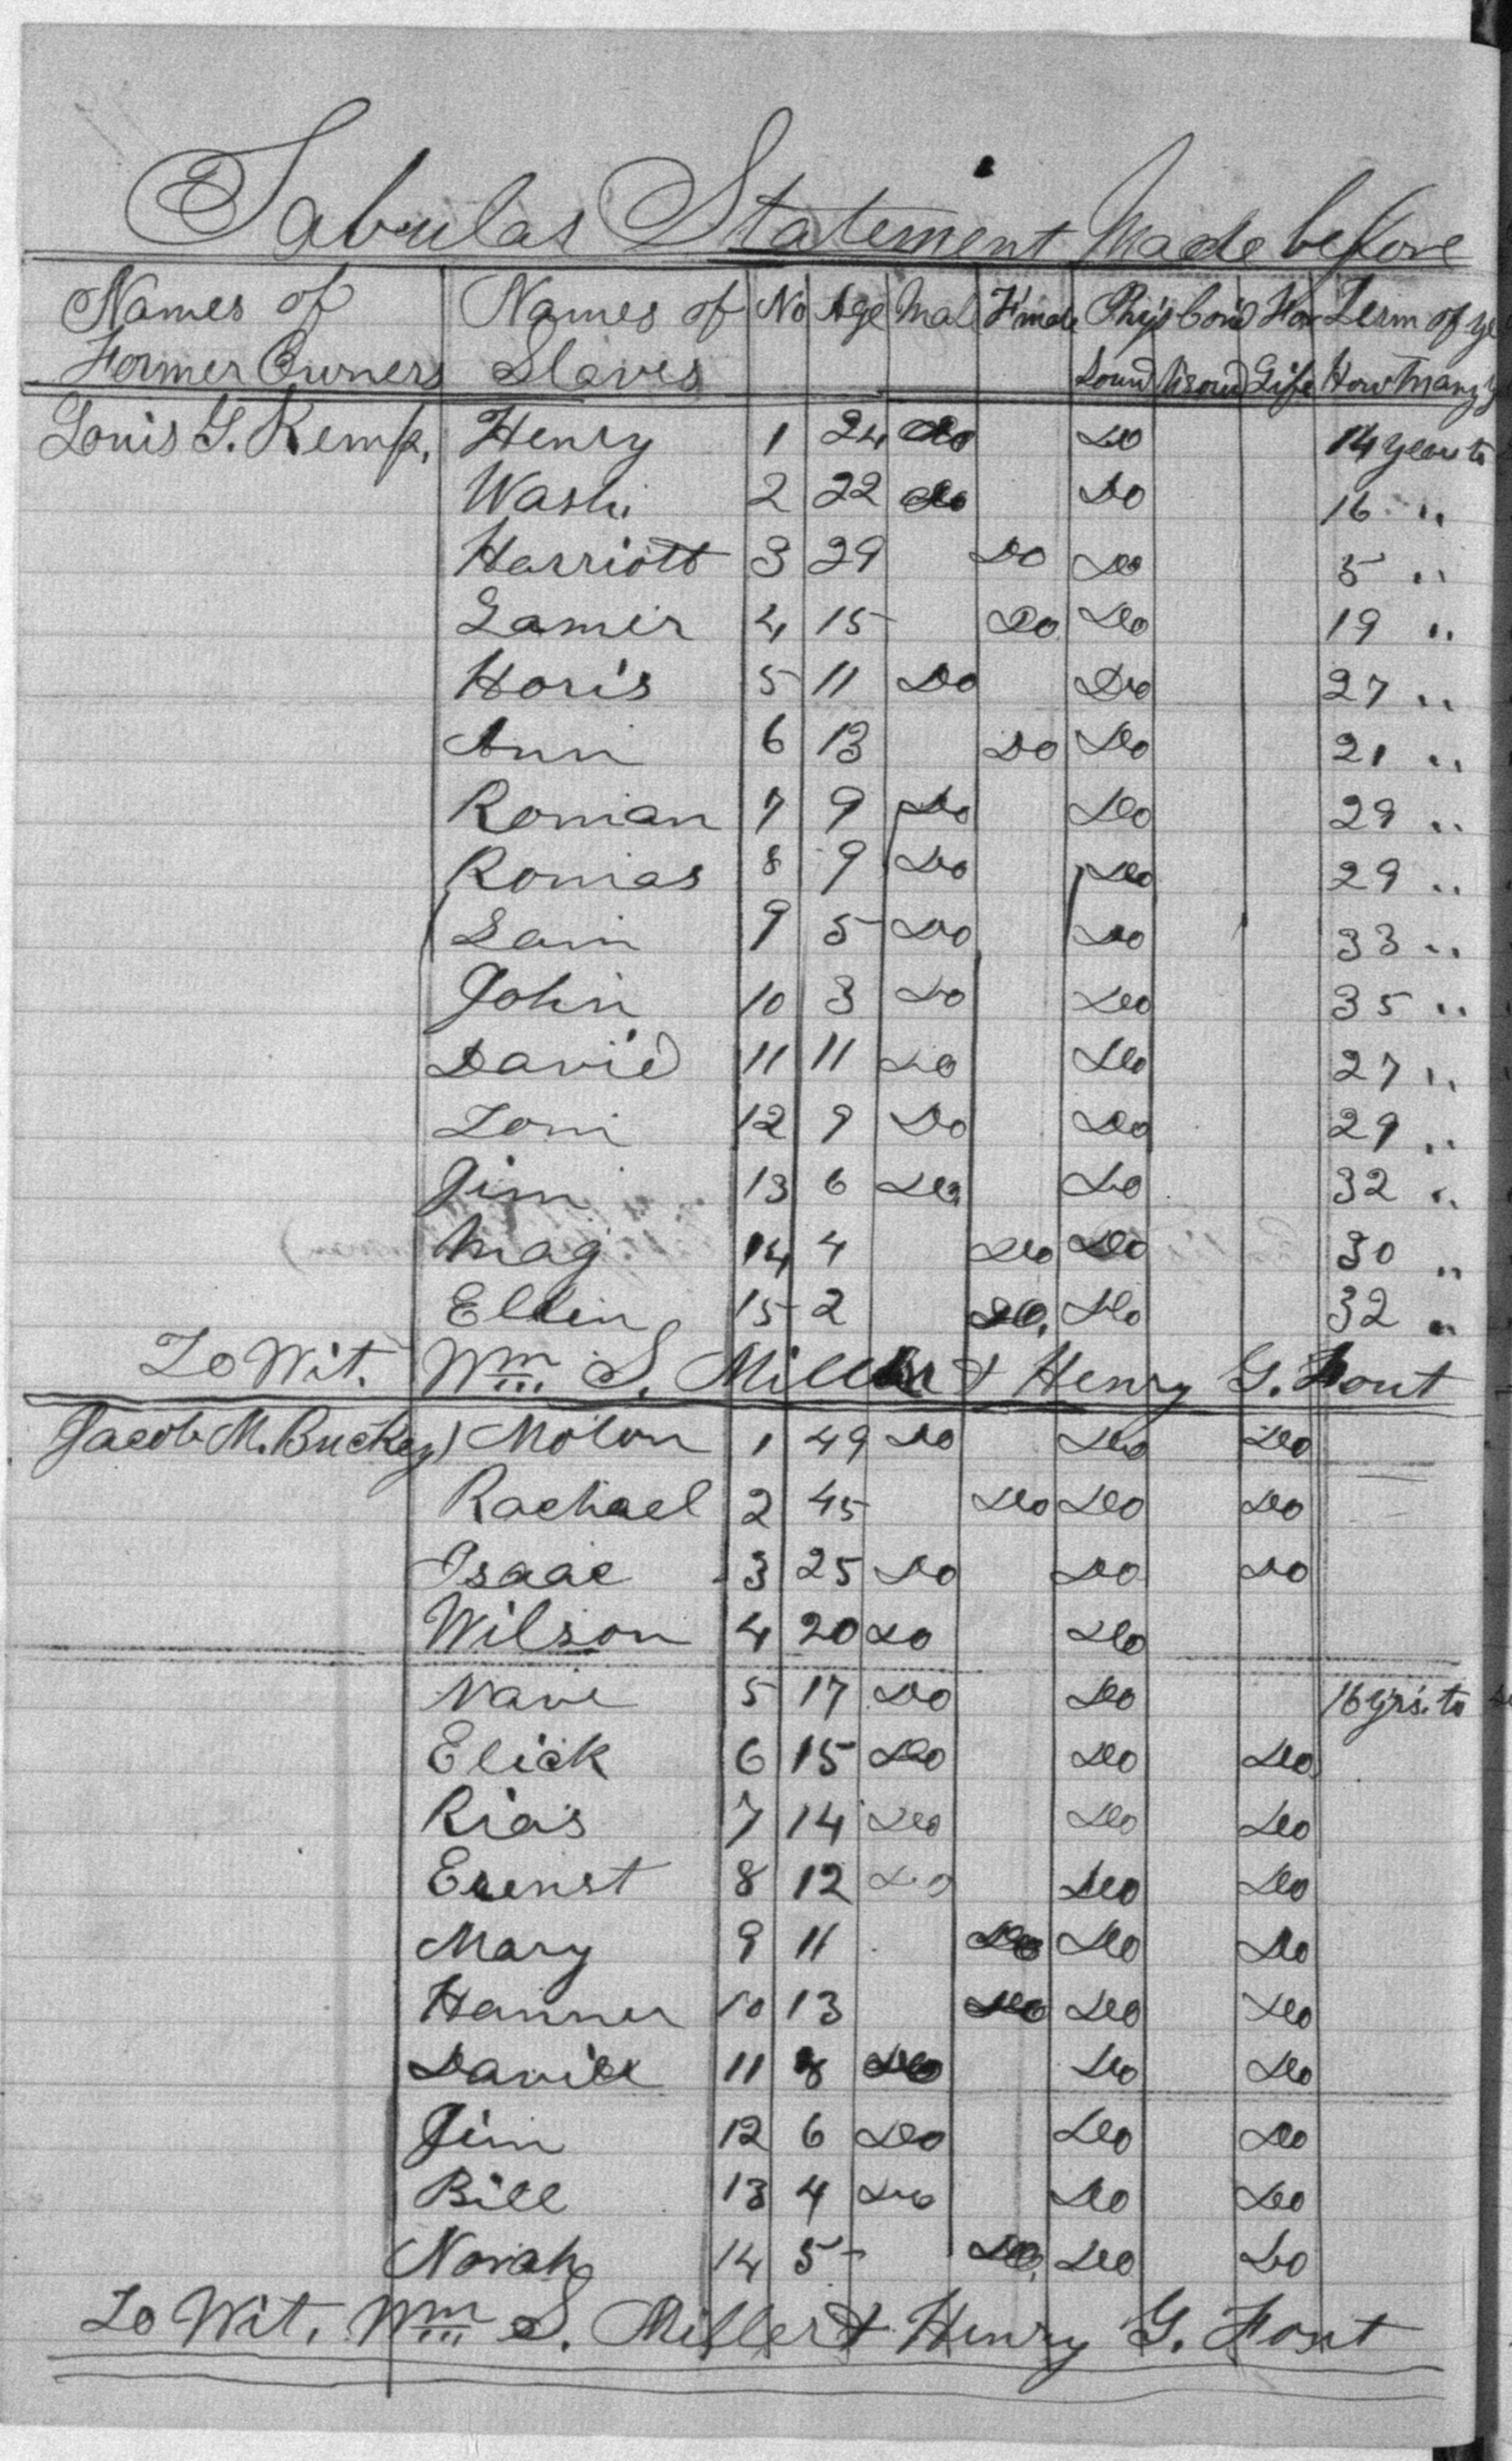 Tabular Statement Made before
Names of Names of No Age Mal Fmale Phy's Con'd For Term of ye
Former Owners Slaves Sound Unsound Life How Many y
Louis G. Kemp, Henry 1 24 Do Do 14 years to
Wash 2 22 Do Do 16 "
Harriott 3 29 Do Do 5 "
Lamir 4 15 Do Do 19 "
Horis 5 11 Do Do 27 "
Ann 6 13 Do Do 21 "
Roman 7 9 Do Do 29 "
Romas 8 9 Do Do 29 "
Sam 9 5 Do Do 33 "
John 10 3 Do Do 35 "
David 11 11 Do Do 27 "
Tom 12 9 Do Do 29 "
Jim 13 6 Do Do 32 "
Mag 14 4 Do Do 30 "
Ellen 15 2 Do. Do 32 "
To Wit. Wm S. Miller & Henry G. Fout
Jacob M. Buckey) Molon 1 49 Do Do Do
Rachael 2 45 Do Do Do
Isaac 3 25 Do Do Do
Wilson 4 20 Do Do
Nave 5 17 Do Do 16 yrs. to
Elick 6 15 Do Do Do
Rias 7 14 Do Do Do
Ernst 8 12 Do Do Do
Mary 9 11 Do Do Do
Hanner 10 13 Do Do Do
David 11 8 Do Do Do
Jim 12 6 Do Do Do
Bill 13 4 Do Do Do
Norah 14 5 Do. Do Do
To Wit. Wm S. Miller & Henry G. Fout